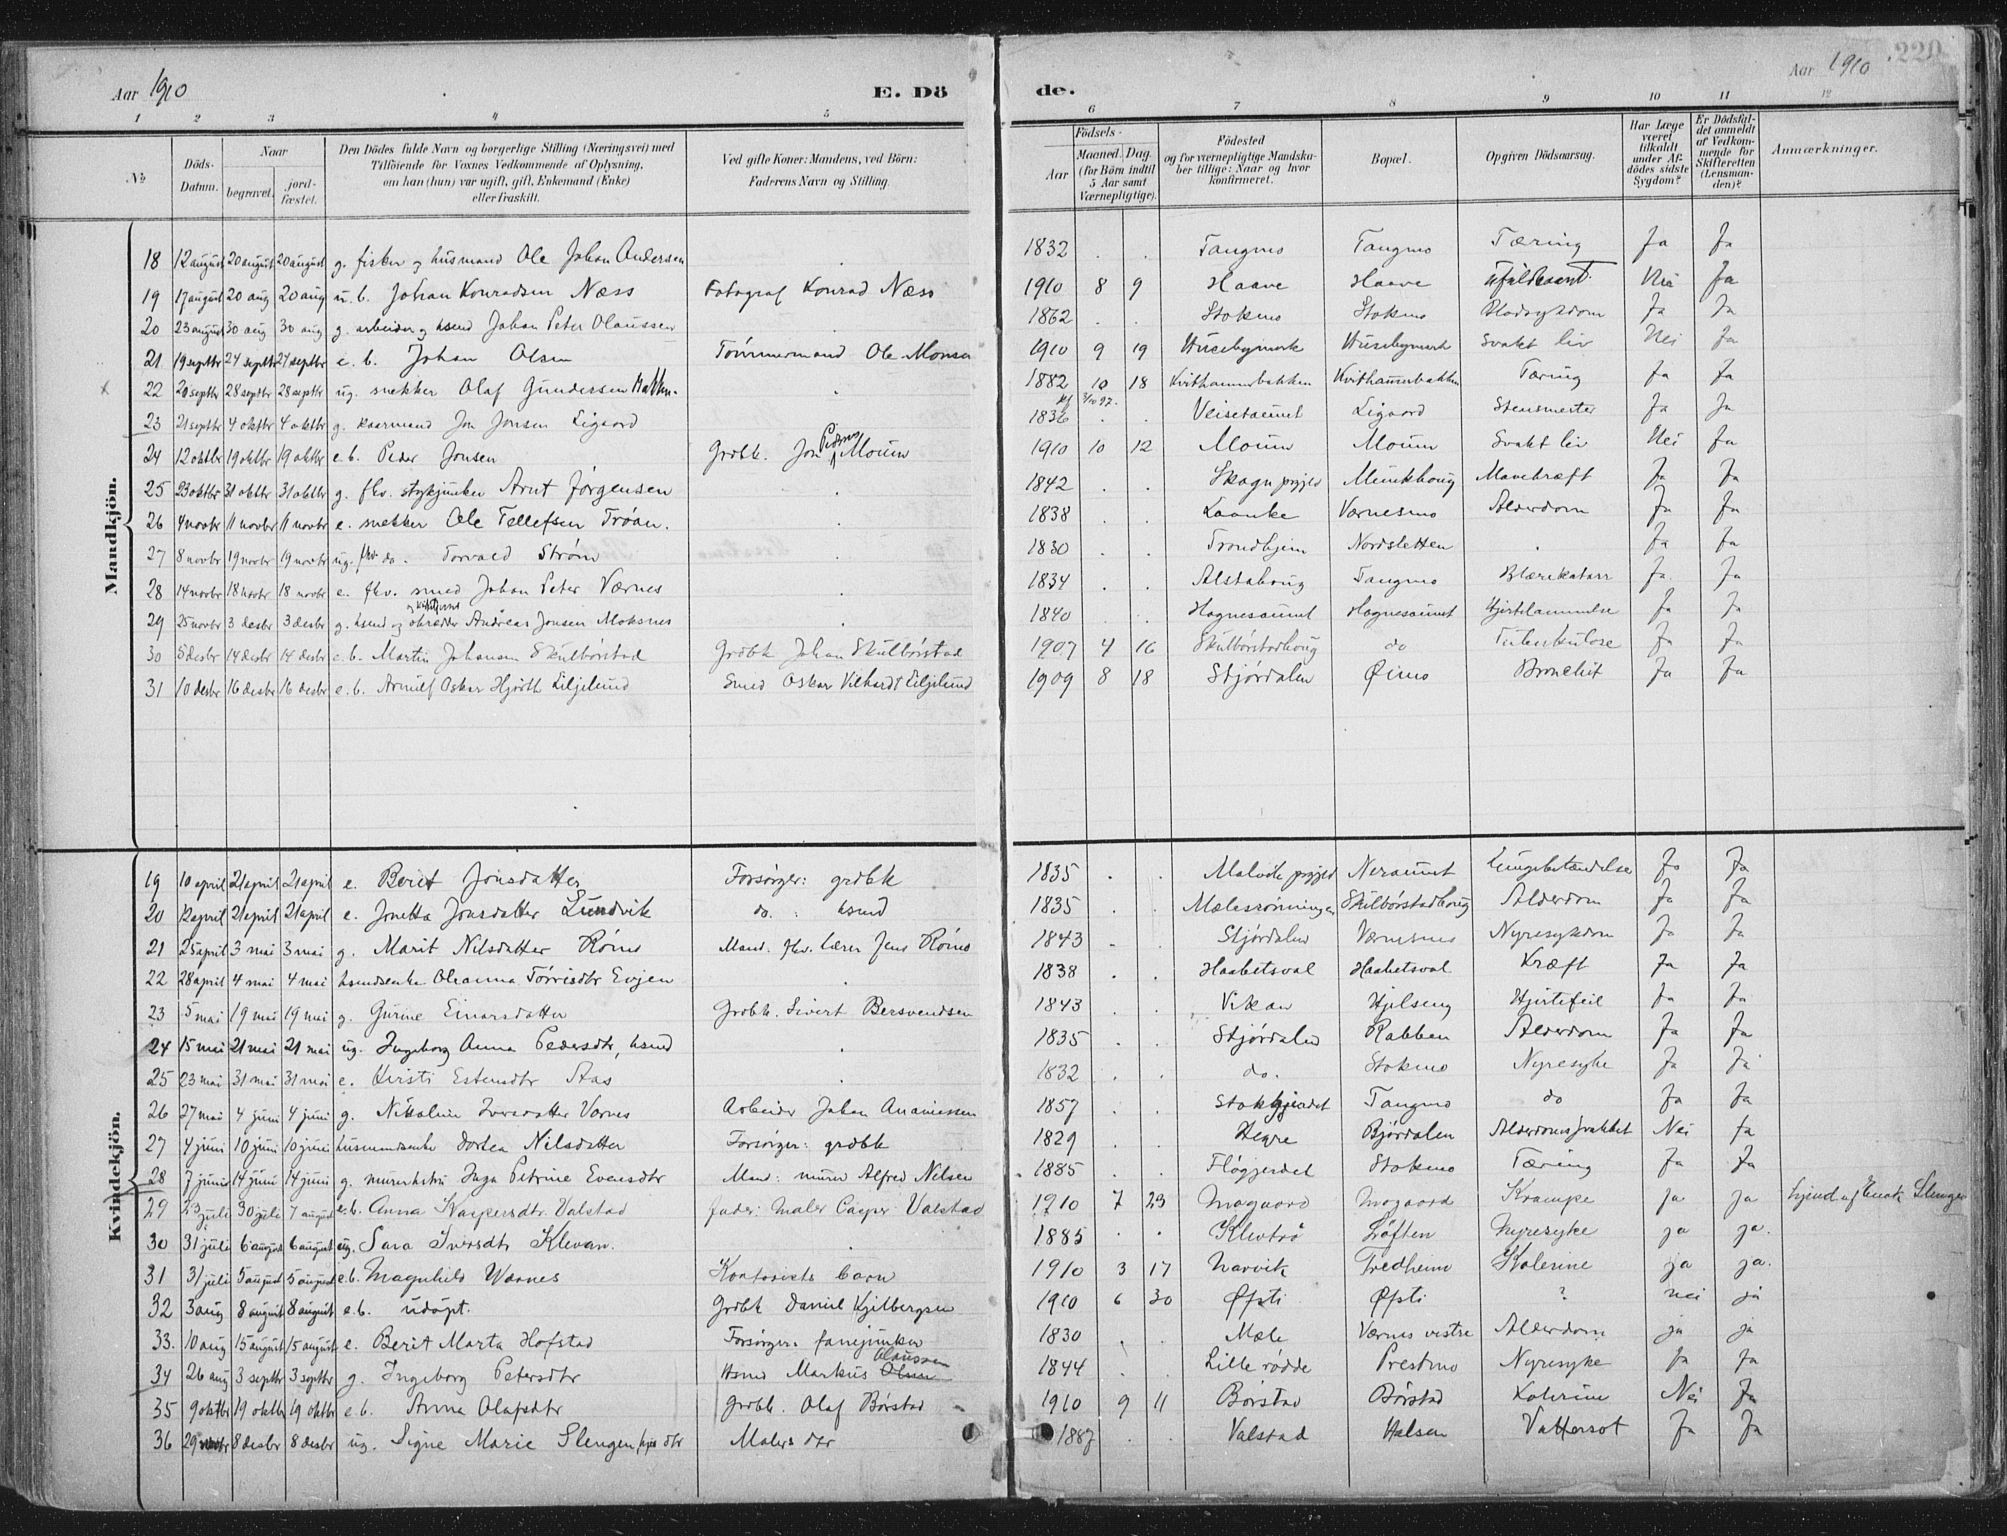 Aar 1910 E. Dö de. Aar 1910 220
1 2 3 4 5 6 7 8 9 10 11 12
No Döds-Datum. Naar begravet. jord-fæstet. Den Dödes fulde Navn og borgerlige Stilling (Næringsvei) med Tilföiende for Voxnes Vedkommende af Oplysning, om han (hun) var ugift, gift, Enkemand (Enke) eller fraskilt. Ved gifte Koner: Mandens, ved Börn: Faderens Navn og Stilling. Födsels- Aar Maaned. Dag. (for Börn indtil 5 Aar samt Værnepligtige). Födested og for værnepligtige Mandskaber tillige: Naar og hvor konfirmeret. Bopæl. Opgiven Dödsaarsag. Har Læge været tilkaldt under Afdödes sidste Sygdom? Er Dödsfaldet anmeldt af Vedkommende for Skifteretten (Lensmanden)? Anmærkninger.
Mandkjön.
18 12 august 20 august 20 august g. fisker og husmand Ole Johan Andersen . 1832 . . Tangmo Tangmo Tæring Ja Ja
19 17 august 20 aug 20 aug u.b. Johan Konradsen Næss Fotograf Konrad Næss 1910 8 9 Haave Haave Ufuldbaaret Nei Ja
20 23 august 30 aug 30 aug g. arbeider og hsmd Johan Peter Olaussen . 1862 . . Stokmo Stokmo Blodsygdom Ja Ja
21 19 septbr 24 septbr 24 septbr e.b. Johan Olsen Tømmermand Ole Monsen 1910 9 19 Husebymark Husebymark Svakt liv Nei Ja
22 20 septbr 28 septbr 28 septbr ug. snekker Olaf Gundersen Bakken . 1882 10 18 Kvithammerbakken Kvithammerbakken Tæring Ja Ja
23 21 septbr 4 oktbr 4 oktbr g. kaarmand Jon Jonsen Ligaard 1836 . . Veisetaunet Ligaard Stensmerter Ja Ja
24 12 oktbr 19 oktbr 19 oktbr e.b. Peder Jonsen Grdbr. Jon Pedersen Moum 1910 10 12 Moum Moum Svakt liv Nei Ja
25 23 oktbr 31 oktbr 31 oktbr g. fhv. stykjunker Arnt Jørgensen . 1842 . . Skogn prgjld Munkhoug Mavekræft Ja Ja
26 4 novbr 11 novbr 11 novbr e. snekker Ole Tellefsen Trøan. . 1838 . . Laanke Værnesmo Alderdom Ja Ja
27 8 novbr 19 novbr 19 novbr ug. fhv do. Torvald Strøm . 1830 . . Trondhjem Nordsletten . Ja Ja
28 14 novbr 18 novbr 18 novbr e. fhv. smed Johan Peter Værnes . 1834 . . Alstahoug Tangmo Blærekatarr Ja Ja
29 25 novbr 3 desbr 3 desbr g. hsmd og skrædder Andreas Jonsen Moksnes . 1840 . . Hognesaunet Hognesaunet Hjertelammelse Ja Ja
30 5 desbr 14 desbr 14 desbr e.b. Martin Johansen Skulbørstad Grdbr Johan Skulbørstad 1907 4 16 Skulbørstadhoug do Tuberkulose Ja Ja
31 10 desbr 16 desbr 16 desbr e.b. Arnulf Oskar Hjorth Liljelund Smed Oskar Vilhardt Liljelund 1909 8 18 Stjørdalen Øimo Bronchit Ja Ja
Kvindekjön.
19 10 april 21 april 21 april e. Berit Jonsdatter Forsørger: grdbr 1835 . . Malvik prgjld Neraunet Lungebetændelse Ja Ja
20 12 april 21 april 21 april e. Jonetta Jonsdatter Lundvik do. : hsmd 1835 . . Mælesrønningen Skulbørstadhoug Alderdom Ja Ja
21 25 april 3 mai 3 mai g. Marit Nilsdatter Rømo Mand. fhv. lærer Jens Rømo 1843 . . Stjørdalen Værnesmo Nyresykdom Ja Ja
22 28 april 4 mai 4 mai hsmdsenke Oleanna Tørrisdtr Evjen . 1838 . . Haabetsvol Haabetsvol Kræft Ja Ja
23 5 mai 19 mai 19 mai g. Gurine Einarsdatter Grdbr. Sivert Bersvendsen 1843 . . Vikan Hjelseng Hjertefeil Ja Ja
24 15 mai 21 mai 21 mai ug. Ingeborg Anna Pedersdtr, hsmd . 1835 . . Stjørdalen Rabben Alderdom Ja Ja
25 23 mai 31 mai 31 mai e. Kirsti Estensdtr Aas . 1832 . . do. Stokmo Nyresyke Ja Ja
26 27 mai 4 juni 4 juni g. Nikoline Iversdatter Værnes Arbeider Johan Ananiassen 1857 . . Stokgjerdet Tangmo do Ja Ja
27 4 juni 10 juni 10 juni husmandsenke Dortea Nilsdatter Forsørger: grdbr 1829 . . Hegre Bjørdalen Alderdomssvakhet Nei Ja
28 7 juni 14 juni 14 juni g. murerhstru Inga Petrine Evensdtr Mand: murer Alfred Nilsen 1885 . . Fløgjerdet Stokmo Tæring Ja Ja
29 23 juli 30 juli 7 august e.b. Anna Kaspersdtr. Valstad fader: Maler Casper Valstad 1910 7 23 Mogaard Mogaard Krampe ja ja hjemd. af Enok Slengen
30 31 juli 6 august 6 august ug. Sara Iversdtr Klevan. . 1885 . . Klevtrø Løften Nyresyke ja ja.
31 31 juli 5 august 5 august e.b. Magnhild Wærnes Kontorists barn 1910 3 17 Narvik Fredheim Kolerine ja ja.
32 3 aug 8 august 8 august e.b. udøpt. Grdbr Daniel Kjelbergsen 1910 6 30 Øfsti Øfsti ? nei ja
33. 10 aug 15 august 15 august e. Berit Marta Hofstad Forsørger: fanejunker 1830 . . Mæle Værnes vestre Alderdom ja ja
34 26 aug 3 septbr 3 septbr g. Ingeborg Petersdtr Hsmd Markus Olaussen 1844 . . Lille rødde Prestmo Nyresyke Ja Ja
35 9 oktbr 19 oktbr 19 oktbr e.b. Anna Olafsdtr Grdbr. Olaf Børstad 1910 9 11 Børstad Børstad Kolerine Nei Ja
36 29 novbr 8 desbr 8 desbr ug. Signe Marie Slengen Malers dtr 1887 . . Valstad Halsen Vattersot Ja Ja